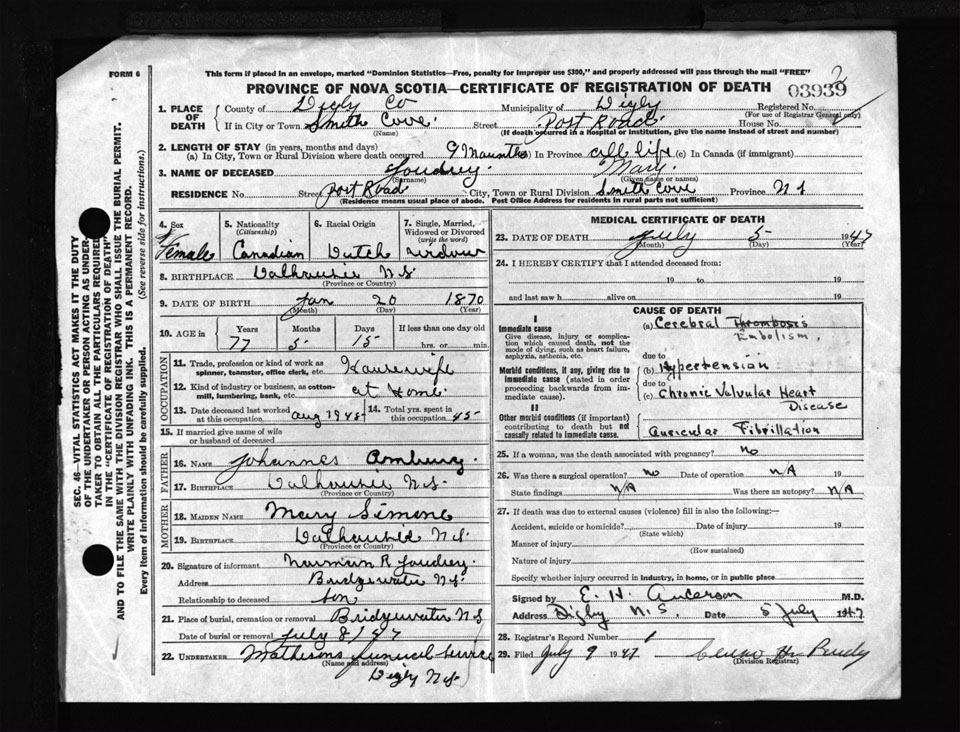 FORM 6
This form if placed in an envelope, marked "Dominion Statistics—Free, penalty for improper use $300," and properly addressed will pass through the mail "FREE"
PROVINCE OF NOVA SCOTIA—CERTIFICATE OF REGISTRATION OF DEATH
03939
1. PLACE OF DEATH
County of Digby Co Municipality of Digby Registered No.
(For use of Registrar General only)
If in City or Town Smith Cove. Street Post Road. House No.
(Name) (If death occurred in a hospital or institution, give the name instead of street and number)
2. LENGTH OF STAY (in years, months and days)
(a) In City, Town or Rural Division where death occurred 9 Maunths (b) In Province all life (c) In Canada (if immigrant)
3. NAME OF DECEASED Joudrey. Mary.
(Surname) (Given name or names)
RESIDENCE No. Street Post Road City, Town or Rural Division Smith Cove Province N S
(Residence means usual place of abode. Post Office Address for residents in rural parts not sufficient)
4. Sex
Female
5. Nationality
(Citizenship)
Canadian
6. Racial Origin
Dutch
7. Single, Married, Widowed or Divorced
(write the word)
widow
8. BIRTHPLACE Dalhousie N.S.
(Province or Country)
9. DATE OF BIRTH Jan 20 1870
(Month) (Day) (Year)
10. AGE in Years Months Days If less than one day old
77 5 15 hrs. or min.
OCCUPATION
11. Trade, profession or kind of work as spinner, teamster, office clerk, etc. Housewife
12. Kind of industry or business, as cotton-mill, lumbering, bank, etc. at Home
13. Date deceased last worked at this occupation aug 1945 14. Total yrs. spent in this occupation 45
15. If married give name of wife or husband of deceased
FATHER
16. NAME Johannes
17. BIRTHPLACE Dalhousie N.S.
(Province or Country)
MOTHER
18. MAIDEN NAME Mary Simone
19. BIRTHPLACE Dalhousie N.S.
(Province or Country)
20. Signature of informant Norman R Joudrey.
Address Bridgewater N.S.
Relationship to deceased son
21. Place of burial, cremation or removal Bridgewater N.S
Date of burial or removal July 8/47
22. UNDERTAKER Mathesons Funeral Service
(Name and address)
Digby N.S.
MEDICAL CERTIFICATE OF DEATH
23. DATE OF DEATH July 5 1947
(Month) (Day) (Year)
24. I HEREBY CERTIFY that I attended deceased from:
19 to 19
and last saw h alive on 19
CAUSE OF DEATH
I
Immediate cause
Give disease, injury or complication which caused death, not the mode of dying, such as heart failure, asphyxia, asthenia, etc.
(a) Cerebral Thrombosis
Embolism,
due to
Morbid conditions, if any, giving rise to immediate cause (stated in order proceeding backwards from immediate cause).
(b) Hypertension
due to
(c) Chronic Valvular Heart
Disease
II
Other morbid conditions (if important) contributing to death but not causally related to immediate cause.
Auricular Fibrillation
25. If a woman, was the death associated with pregnancy? no
26. Was there a surgical operation? no Date of operation n/A 19
State findings n/A Was there an autopsy? N/A
27. If death was due to external causes (violence) fill in also the following:—
Accident, suicide or homicide? Date of injury 19
(State which)
Manner of injury
(How sustained)
Nature of injury
Specify whether injury occurred in industry, in home, or in public place
Signed by E. H. Anderson M.D.
Address Digby N.S. Date 5 July 1947
28. Registrar's Record Number 1
29. Filed July 9 1947
(Division Registrar)
SEC. 46—VITAL STATISTICS ACT MAKES IT THE DUTY
OF THE UNDERTAKER OR PERSON ACTING AS UNDERTAKER TO OBTAIN ALL THE PARTICULARS REQUIRED
IN THE "CERTIFICATE OF REGISTRATION OF DEATH"
AND TO FILE THE SAME WITH THE DIVISION REGISTRAR WHO SHALL ISSUE THE BURIAL PERMIT.
WRITE PLAINLY WITH UNFADING INK. THIS IS A PERMANENT RECORD.
Every item of information should be carefully supplied. (See reverse side for instructions.)